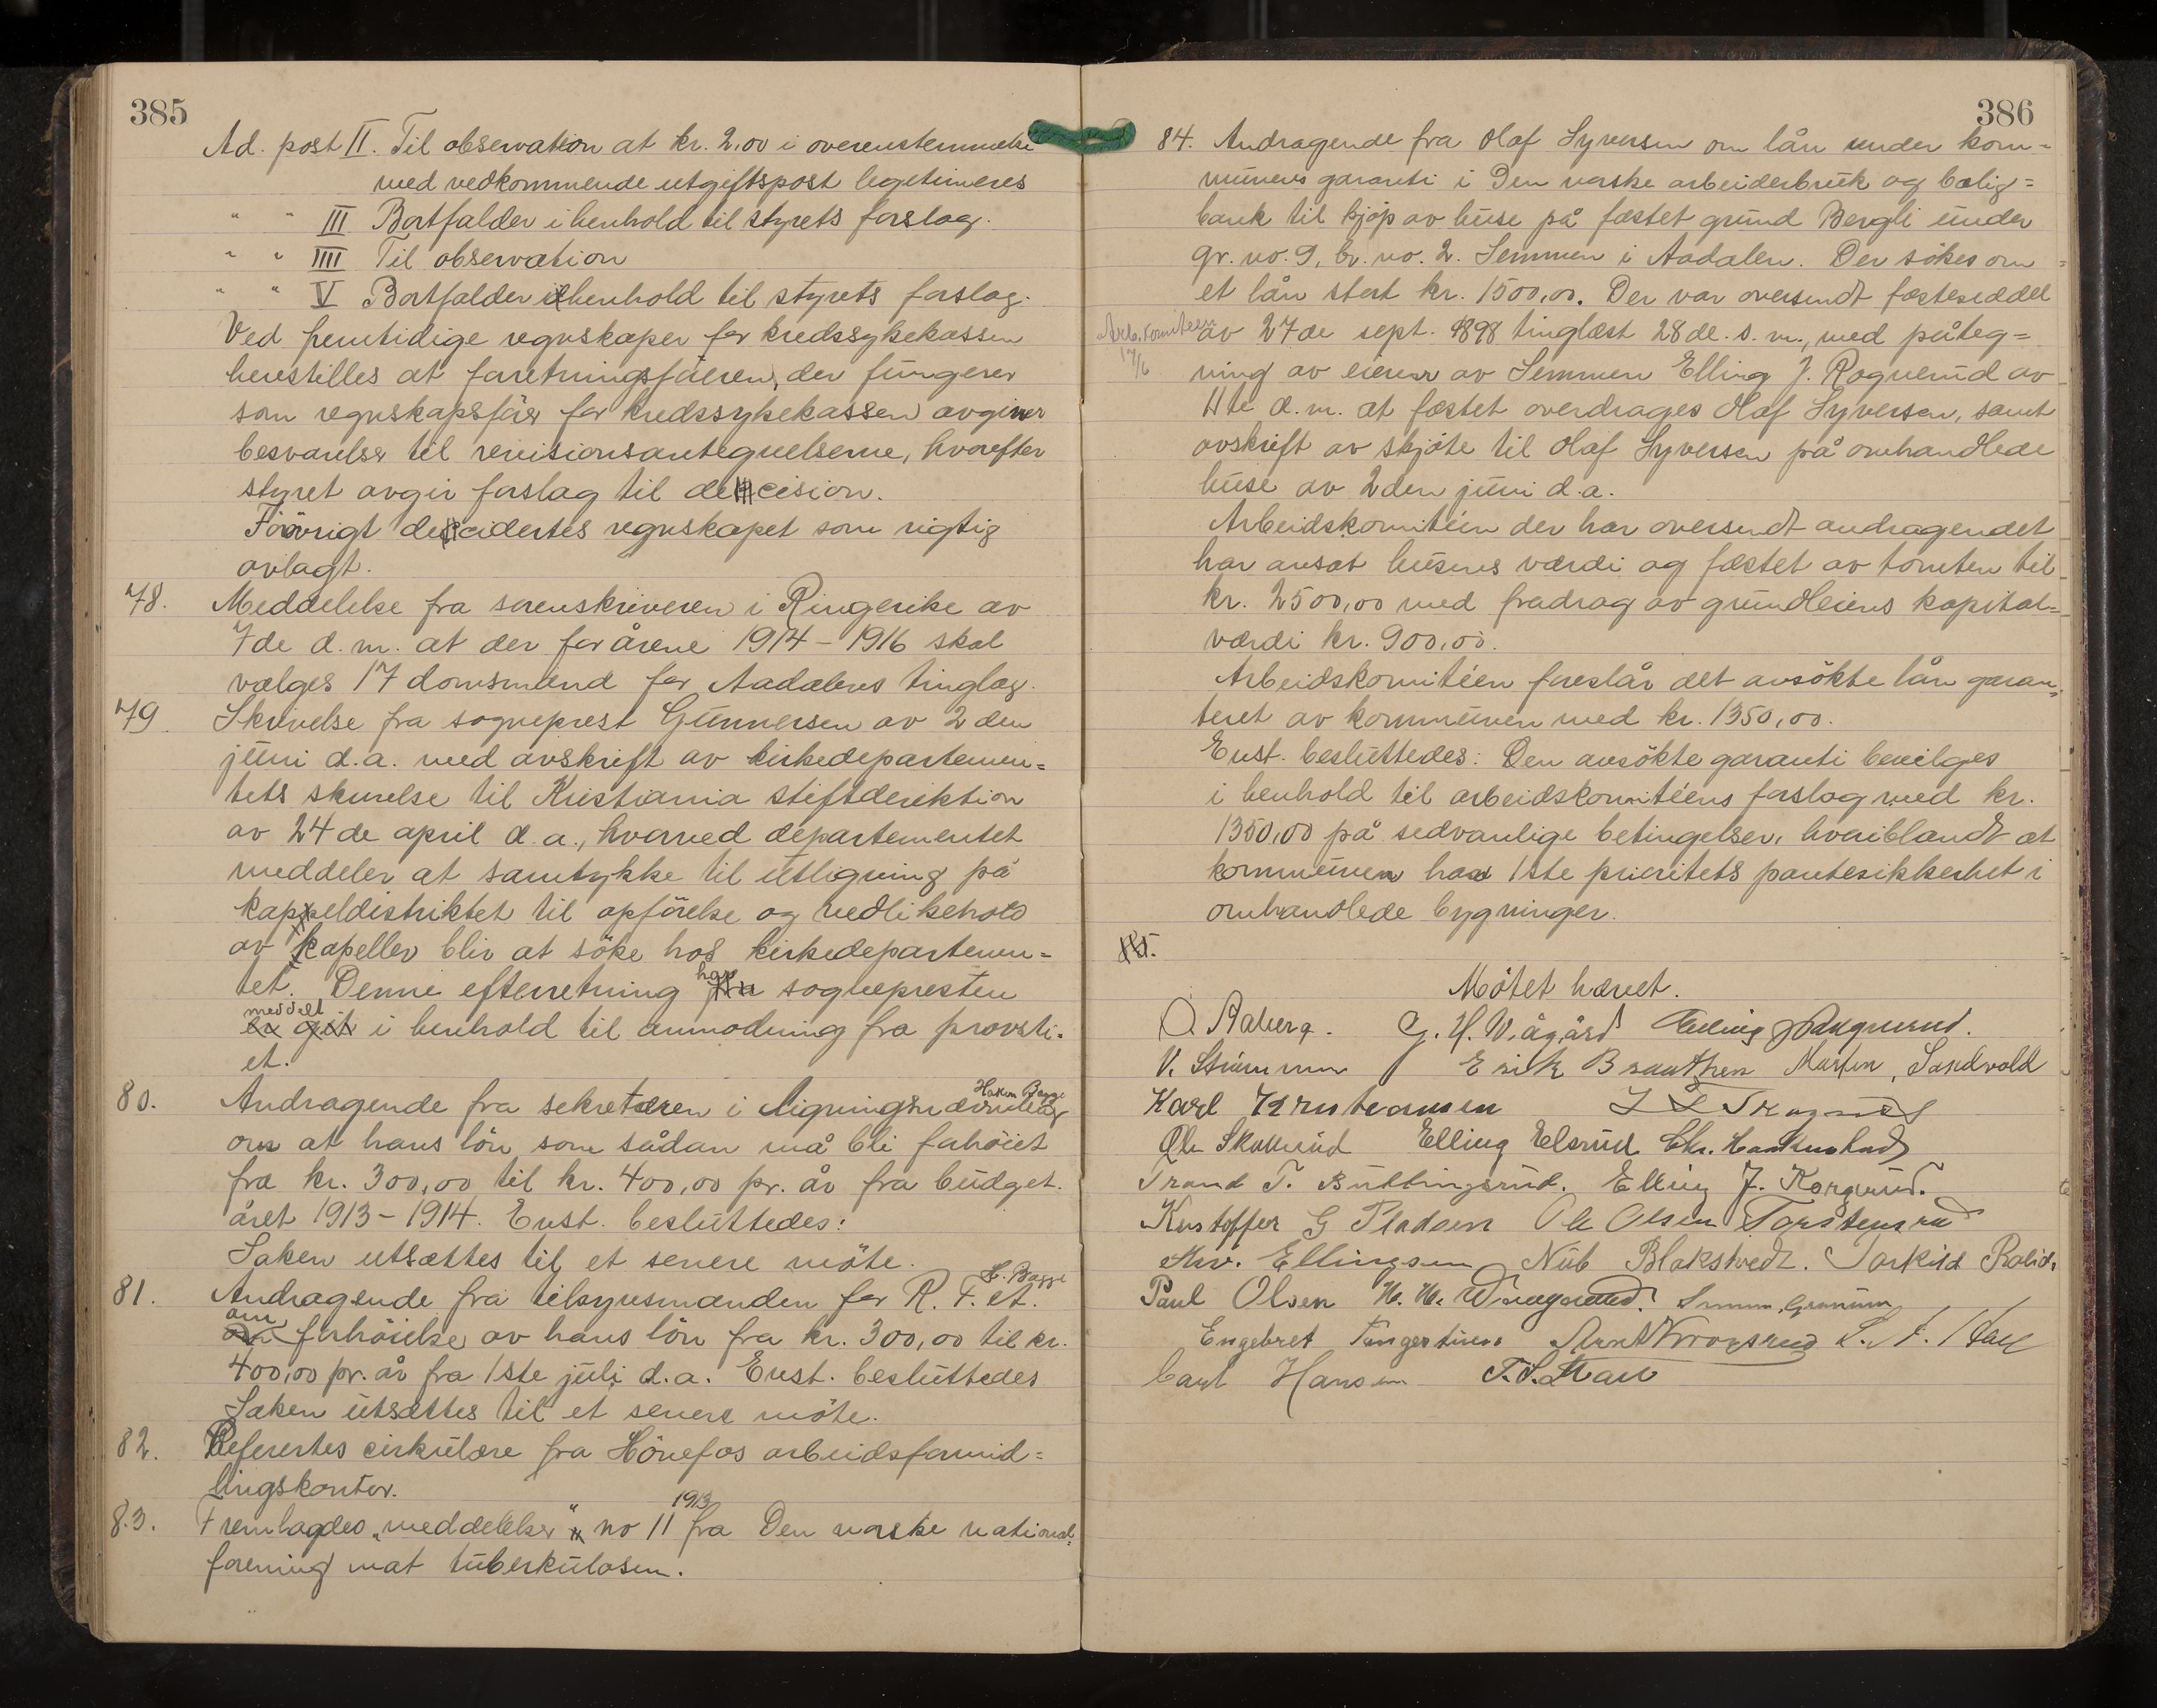 385
Ad. post II. Til observation at kr. 2,00 i overenstemmelse
med vedkommende utgiftspost legitimeres
" " III Bortfalder i henhold til styrets forslag.
" " IIII Til observation
" " V Bortfalder i henhold til styrets forslag.
Ved fremtidige regnskaper for kredssykekassen
henstilles at forretningsføreren, der fungerer
som regnskapsfører for kredssykekassen avgiver
besvarelse til revisionsantegnelserne, hvorefter
styret avgir forslag til decision.
Forøvrigt decidertes regnskapet som rigtig
avlagt.
78. Meddelelse fra sorenskriveren i Ringerike av
7de d.m. at der for årene 1914 - 1916 skal
vælges 17 domsmænd for Aadalens tinglag.
79. Skrivelse fra sogneprest Gunnersen av 2den
juni d.a. med avskrift av kirkedepartemen=
tets skrivelse til Kristiania stiftsdirektion
av 24de april d.a., hvorved departementet
meddeler at samtykke til utligning på
kapeldistriktet til opførelse og vedlikehold
av kapeller blir at søke hos kirkedepartemen=
tet. Denne efterretning har sognepresten
meddelt
er git i henhold til anmodning fra provsti-
et.
Hakon Bagge
80. Andragende fra sekretæren i ligningsnævnden
om at hans løn som sådan må bli forhøiet
fra kr. 300,00 til kr. 400,00 pr. år fra budget-
året 1913 - 1914. Enst. besluttedes:
Saken utsættes til et senere møte.
H. Bagge
81. Andragende fra tilsynsmanden for R. F. et.
om forhøielse av hans løn fra kr. 300,00 til kr.
400,00 pr. år fra 1ste juli d.a. Enst. besluttedes
Saken utsættes til et senere møte.
82. Refertes cirkulære fra Hønefos arbeidsformid=
lingskontor.
1913
83. Fremlagdes „meddelelser" no 11 fra Den norske national=
forening mot tuberkulosen.
386
84. Andragende fra Olaf Syversen om lån under kom=
munens garanti i Den norske arbeiderbruk og bolig=
bank til kjøp av huse på fæstet grund Bergli under
gr. no. 9, br. no. 2. Semmen i Aadalen. Der søkes om
et lån stort kr. 1500,00. Der var oversendt fæsteseddel
Arb. komiteen
17/6
av 27de sept. 1898 tinglæst 28de s.m., med påteg=
ning av eieren av Semmen Elling J. Rognerud av
11te d.m. at fæstet overdrages Olaf Syversen, samt
avskrift av skjøte til Olaf Syversen på omhandlede
huse av 2den juni d.a.
Arbeidskomitéen der har oversendt andragendet
har ansat husenes værdi og fæstet av tomten til
kr. 2500,00 med fradrag av grundleiens kapital=
værdi kr. 900,00.
Arbeidskomitéen foreslår det ansøkte lån garan=
teret av kommunen med kr. 1350,00.
Enst. besluttedes: Den ansøkte garanti bevilges
i henhold til arbeidskomitéens forslag med kr.
1350,00 på sedvanlige betingelser, hvoriblandt at
kommunen har 1ste prioritets pantesikkerhet i
omhandlede bygninger.
85.
Møtet hævet.
O. Aaberg. G. H. Vågård Elling J Rognerud.
V. Strømmen Erik Braathen Martin Sandvold
Karl
Ole Elling Elsrud Chr.
Trond T. Bullingsrud. Elling J.
Kristoffer G Pladsen Ole Olsen Torstensrud
Ellingsen Nub Blakstvedt.
Paul Olsen H. H.
Engebret L. A.
Carl Hansen T. S.